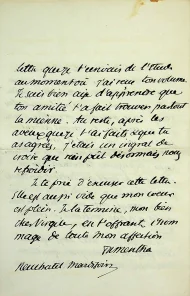 lettre que je t'envoie de l'étude
au moment où j'ai reçu ton volume
Je suis bien aise d'apprendre que
ton amitié t'a fait trouver partout
la mienne. Au reste, après les
aveux que je t'ai faits et que tu
as agréés, j'étais un ingrat de
croire que rien pût désormais nous
refroidir.
Je te prie d'excuser cette lettre.
Elle est aussi vide que mon coeur
est plein. Je la termine, mon bien
cher, en t'offrant l'hom
mage de toute mon affection